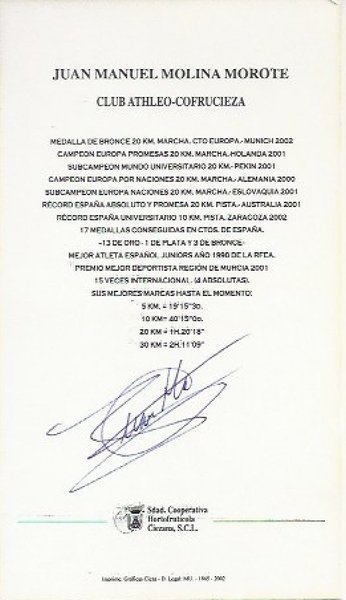 JUAN MANUEL MOLINA MOROTE
CLUB ATHLEO-COFRUCIEZA
MEDALLA DE BRONCE 20 KM. MARCHA. CTO EUROPA.- MUNICH 2002
CAMPEON EUROPA PROMESAS 20 KM. MARCHA.-HOLANDA 2001
SUBCAMPEON MUNDO UNIVERSITARIO 20 KM.- PEKIN 2001
CAMPEON EUROPA POR NACIONES 20 KM. MARCHA.- ALEMANIA 2000
SUBCAMPEON EUROPA NACIONES 20 KM. MARCHA.- ESLOVAQUIA 2001
RÉCORD ESPAÑA ABSOLUTO Y PROMESA 20 KM. PISTA.- AUSTRALIA 2001
RÉCORD ESPAÑA UNIVERSITARIO 10 KM. PISTA. ZARAGOZA 2002
17 MEDALLAS CONSEGUIDAS EN CTOS. DE ESPAÑA.
-13 DE ORO - 1 DE PLATA Y 3 DE BRONCE-
MEJOR ATLETA ESPAÑOL JUNIORS AÑO 1990 DE LA RFEA.
PREMIO MEJOR DEPORTISTA REGIÓN DE MURCIA 2001
15 VECES INTERNACIONAL. (4 ABSOLUTAS).
SUS MEJORES MARCAS HASTA EL MOMENTO:
5 KM. = 19'15"3o.
10 KM= 40'15"0o.
20 KM = 1H.20'18"
30 KM = 2H.11'09"
Sdad. Cooperativa
Hortofrutícola
Ciezana, S.C.L.
Imprime. Gráficas Cieza - D. Legal: MU. - 1865 - 2002